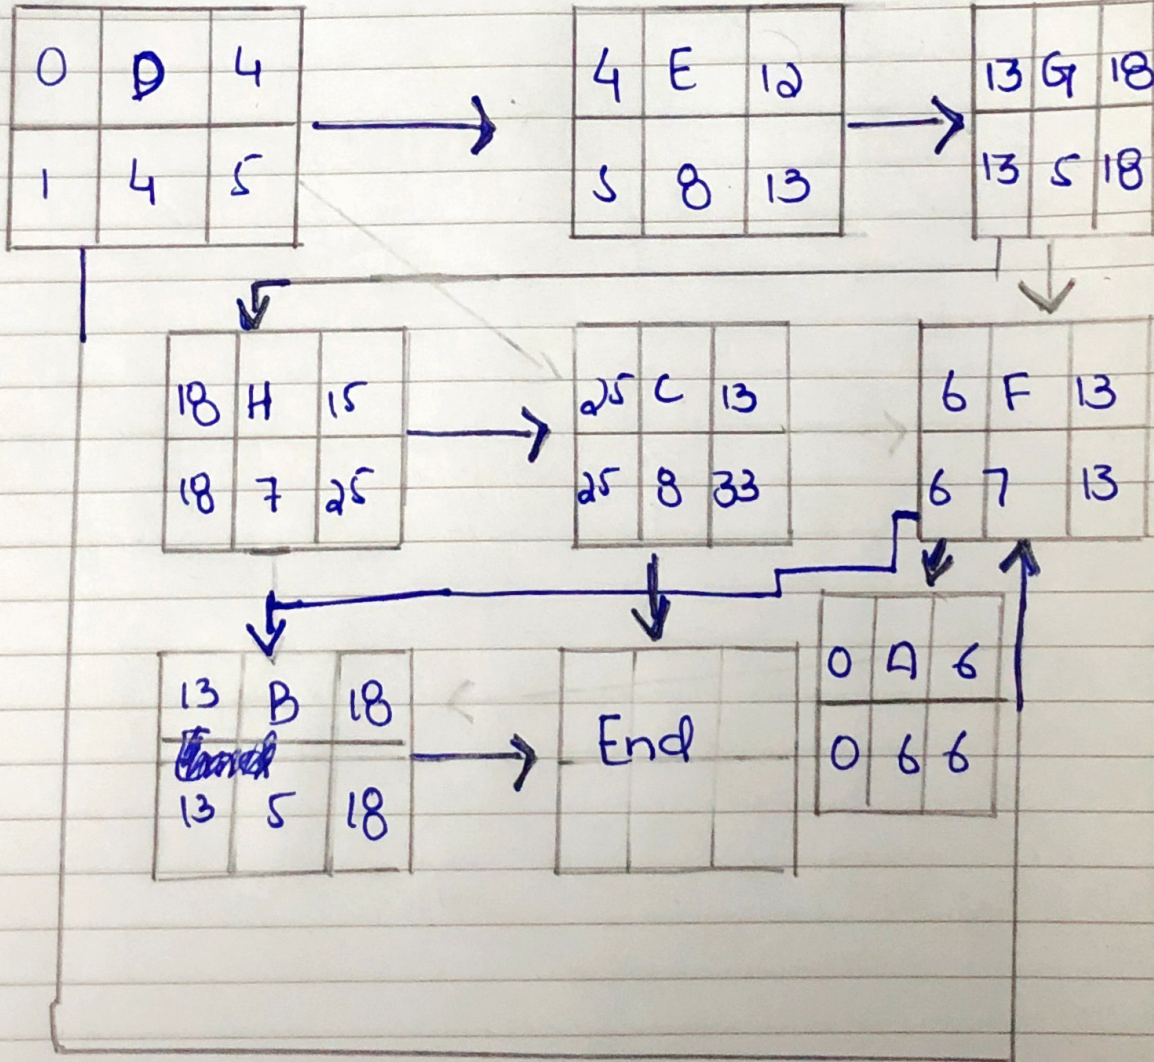 0 D 4
1 4 5
4 E 12
5 8 13
13 G 18
13 5 18
18 H 15
18 7 25
25 C 13
25 8 33
6 F 13
6 7 13
13 B 18
13 5 18
End
0 A 6
0 6 6